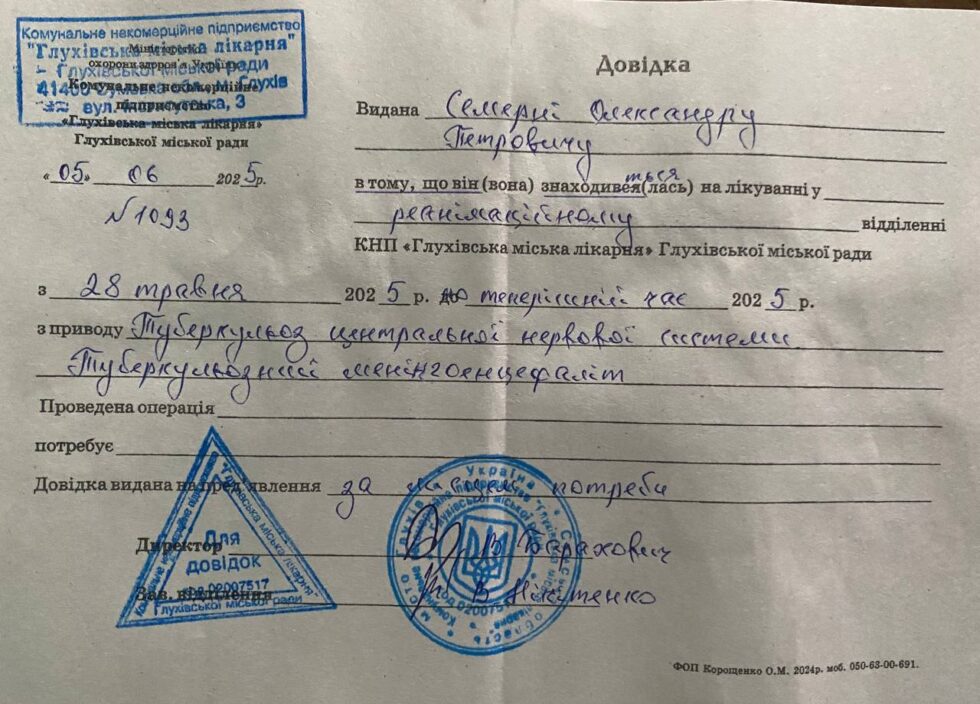 Комунальне некомерційне підприємство
"Глухівська міська лікарня"
Глухівської міської ради
вул. 3
Міністерство
охорони здоров'я України
Комунальне некомерційне
підприємство
«Глухівська міська лікарня»
Глухівської міської ради
«05» 06 2025р.
№1093
Довідка
Видана Семерні Олександру
Петровичу
в тому, що він (вона) знаходився (лась) ться на лікуванні у
реанімаційному відділенні
КНП «Глухівська міська лікарня» Глухівської міської ради
з 28 травня 2025 р. до теперішній час 2025 р.
з приводу Туберкульоз центральної нервової системи
Туберкульозний менінгоенцефаліт
Проведена операція
потребує
Довідка видана на пред'явлення за місцем потреби
Директор В Барахович
Зав. відділення В Нікітенко
Комунальне некомерційне підприємство "Глухівська міська лікарня"
Для
довідок
код 02007517
Глухівської міської ради
Україна * Сумська область * м.
Комунальне підприємство "Глухівська міська лікарня"
Глухівської міської ради
Код 02007517
ФОП Корощенко О.М. 2024р. моб. 050-63-00-691.